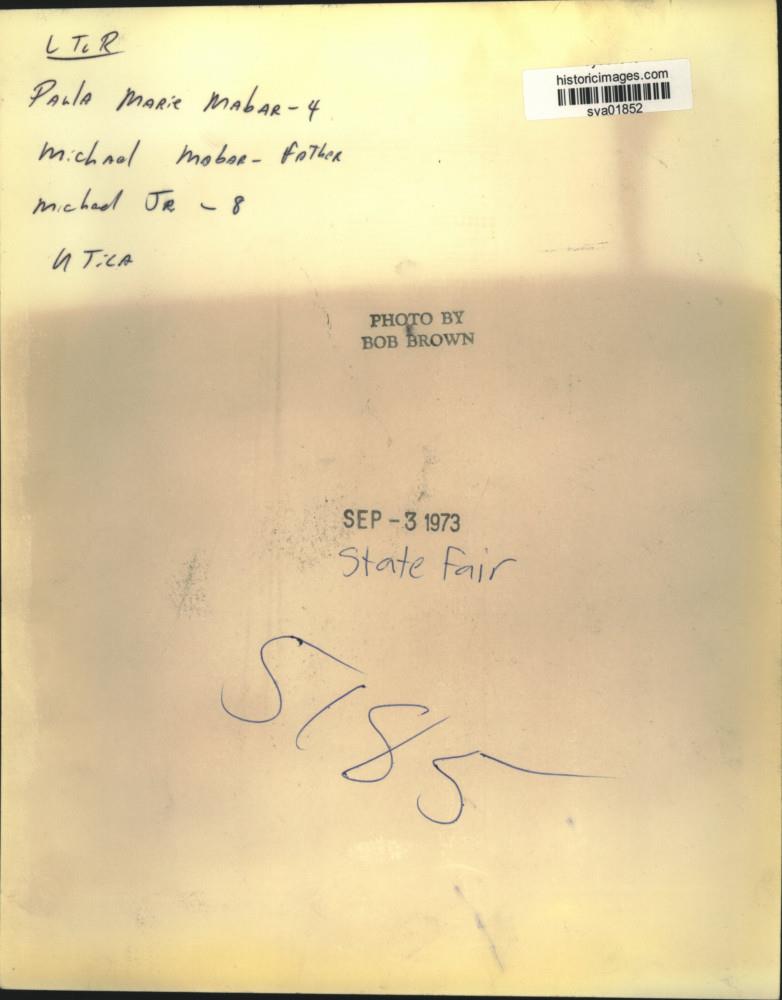 L To R
historicimages.com
sva01852
Paula Marie Mabar - 4
Michael Mabar - Father
Michael Jr - 8
Utica
PHOTO BY
BOB BROWN
SEP - 3 1973
State Fair
5185